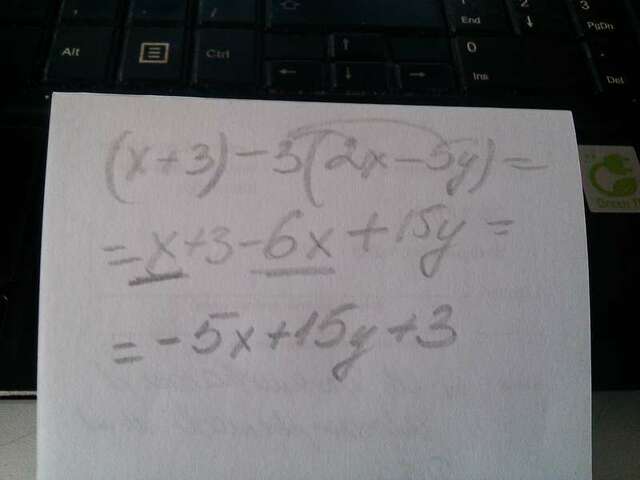 End
PgDn
Alt
Ctrl
0
Ins
Del
(x+3)-3(2x-5y)=
=x+3-6x+15y=
=-5x+15y+3